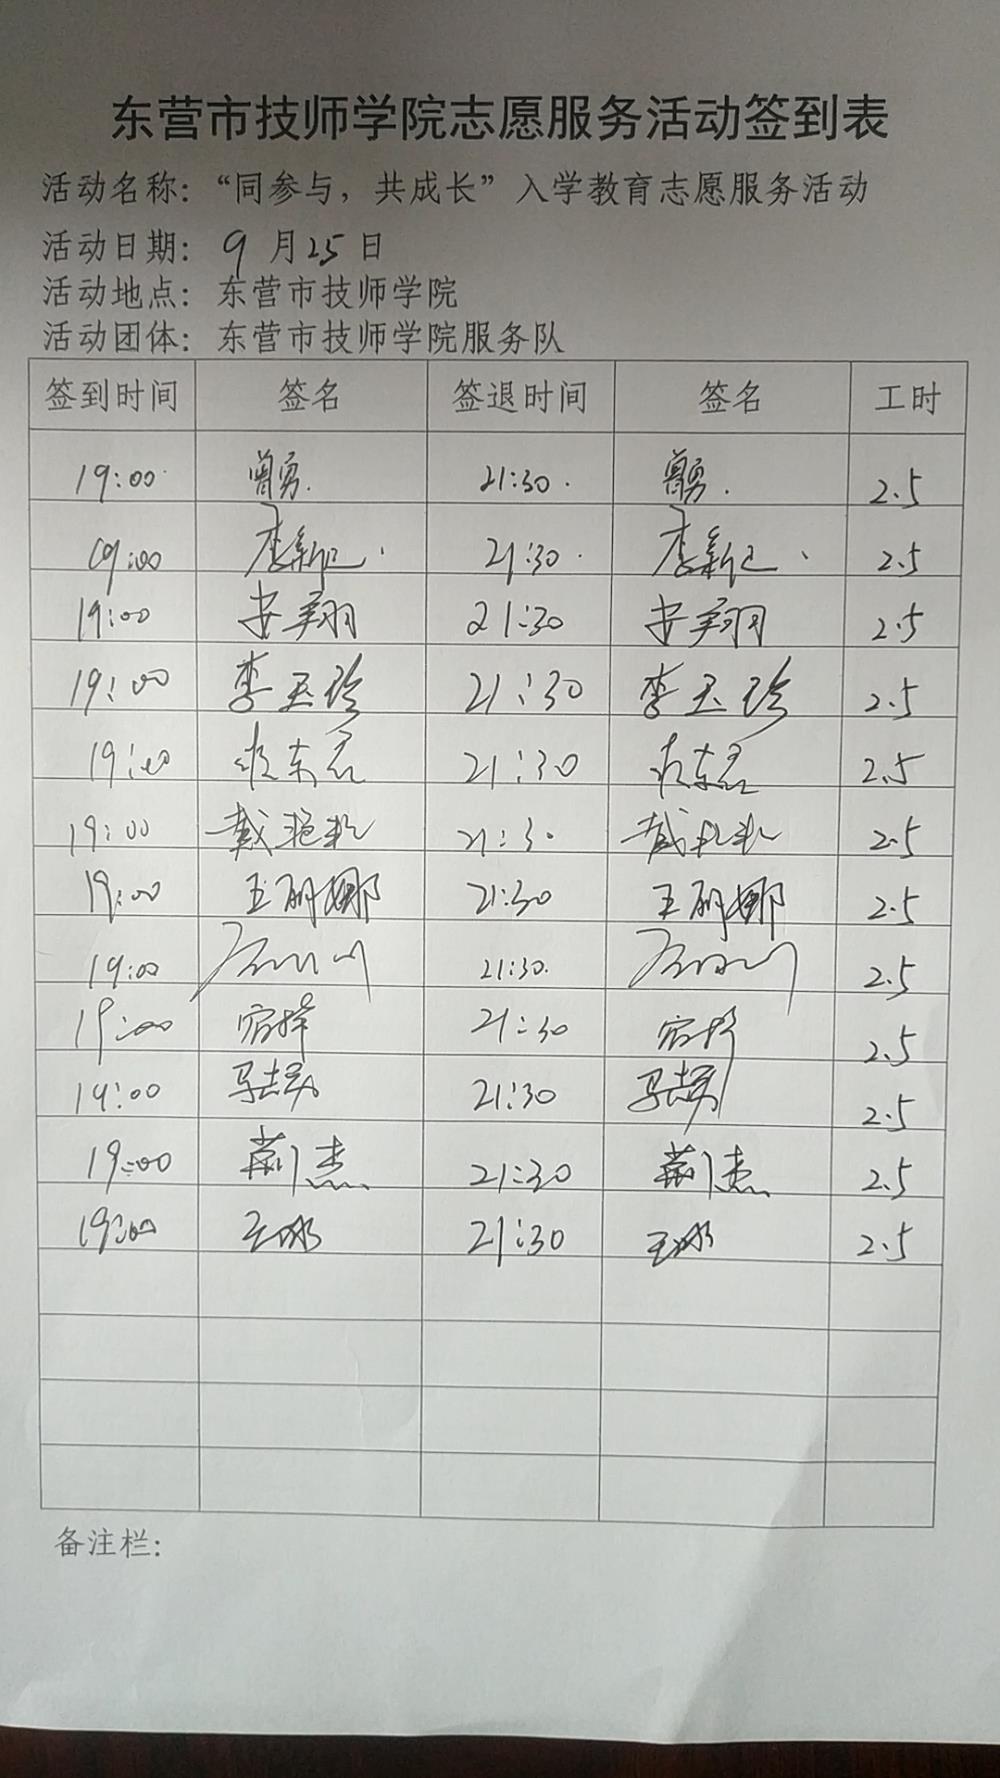 东营市技师学院志愿服务活动签到表
活动名称：“同参与，共成长”入学教育志愿服务活动
活动日期：9月25日
活动地点：东营市技师学院
活动团体：东营市技师学院服务队
签到时间 签名 签退时间 签名 工时
19:00 曾勇 21:30 曾勇 2.5
19:00 李新 21:30 李新 2.5
19:00 安翔 21:30 安翔 2.5
19:00 李玉珍 21:30 李玉珍 2.5
19:00 张东磊 21:30 张东磊 2.5
19:00 戴艳 21:30 戴艳 2.5
19:00 王丽娜 21:30 王丽娜 2.5
19:00 21:30 2.5
19:00 宿 21:30 宿 2.5
19:00 马志勇 21:30 马志勇 2.5
19:00 荆杰 21:30 荆杰 2.5
19:00 王 21:30 王 2.5
备注栏：